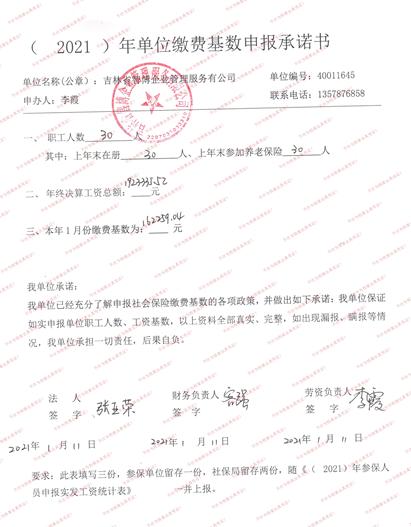 （ 2021 ）年单位缴费基数申报承诺书
单位名称(公章)：吉林省智博企业管理服务有限公司 单位编号：40011645
申办人：李霞 联系电话：1357876858
一、 职工人数 30 人
其中：上年末在册 30 人、上年末参加养老保险 30 人
二、年终决算工资总额： 1923335.52 元
三、本年1月份缴费基数为： 162259.04 元
我单位承诺：
我单位已经充分了解申报社会保险缴费基数的各项政策，并做出如下承诺：我单位保证
如实申报单位职工人数、工资基数，以上资料全部真实、完整，如出现漏报、瞒报等情
况，我单位承担一切责任，后果自负。
法 人 财务负责人 劳资负责人
签 字 签 字 签 字 李霞
2021年 1月 11日 2021年 1月 11日 2021年 1月 11日
要求：此表填写三份，参保单位留存一份，社保局留存两份，随《（ 2021）年参保人
员申报实发工资统计表》 一并上报。